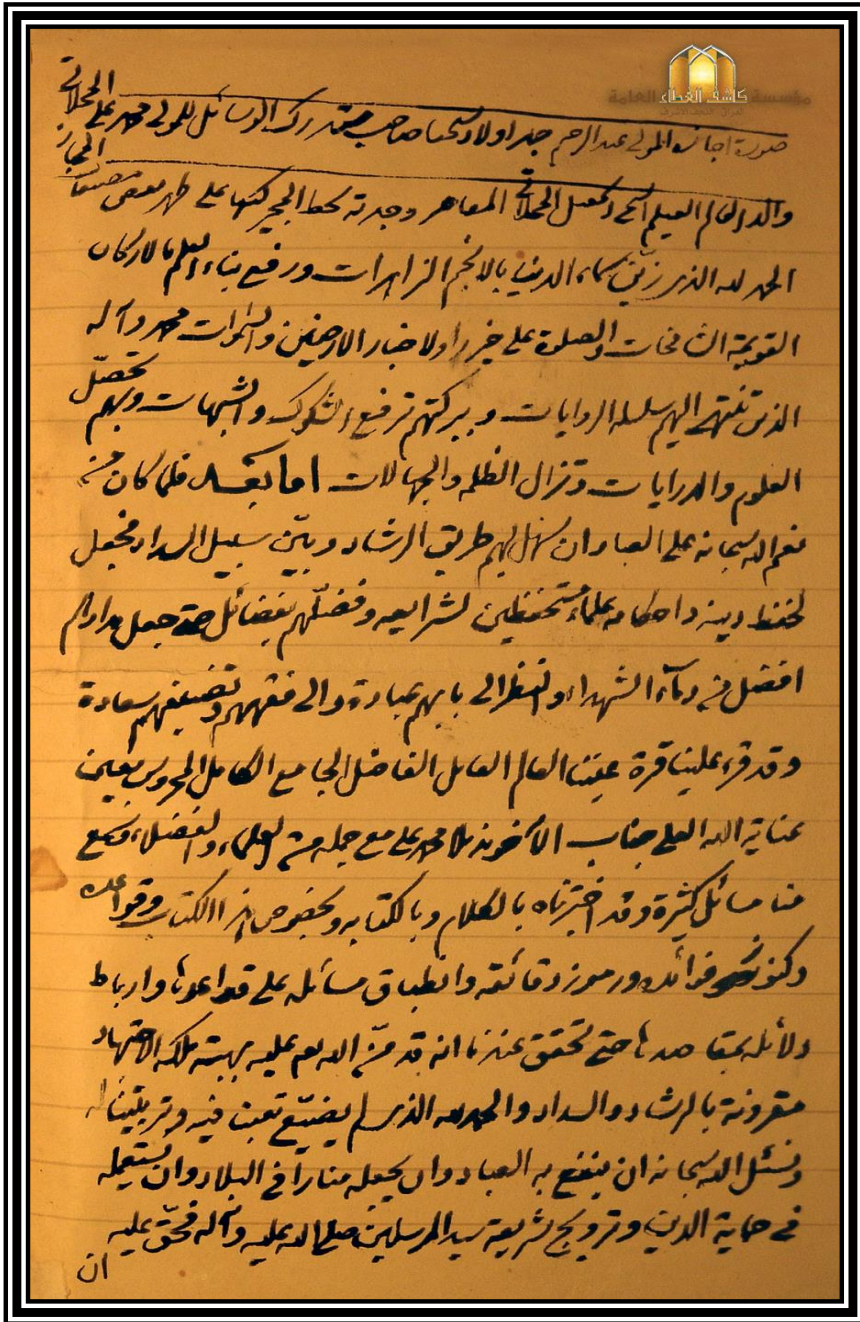 مؤسسة كاشف الغطاء العامة
صورة اجازة المولى عبد الرحيم جد اولاد شيخنا صاحب مستدرك الوسائل للمولى محمد علي المحلاتي
المجاز
والد العالم العيلم الشيخ اسمعيل المحلاتي المعاصر وجدته بخط المجيز كتبها على ظهر بعض مصنفات
الحمد لله الذي زيّن سماء الدنيا بالانجم الزاهرات ورفع بناء العلم بالاركان
القويمة الشامخات والصلوة على خير اولا خبار الارضين والسموات محمد وآله
الذين تنتهي اليهم سلسلة الروايات وببركتهم ترفع الشكوك والشبهات وبهم تحصّل
العلوم والدرايات وتزال الظلم والجهالات اما بعد فلما كان من
نعم الله سبحانه على العباد ان سهل لهم طريق الرشاد وبيّن سبيل السداد فجعل
لحفظ دينه واحكامه علماء مستحفظين لشرايعه وفضّلهم بفضائل حتى جعل مدادهم
افضل من دماء الشهداء والنظر الى بابهم عبادة والى فقههم وتصنيفهم سعادة
وقد قرء علينا قرة عيننا العالم العامل الفاضل الجامع الكامل المحروس بعين
عناية الله العلي جناب الآخوند ملا محمد علي مع جملة من العلماء والفضلاء فسمع
منا مسائل كثيرة وقد اختبرناه بالكلام وبالكتابه وبخصوص هذا الكتاب وقواعده
وكنوز فوائده ورموز دقائقه وانطباق مسائله على قواعدها وارباط
دلائله بمقاصدها حتى تحقق عندنا انه قد منّ الله تعم عليه بهبته ملكة الاجتهاد
مقرونة بالرشاد والسداد والحمد لله الذي لم يضيّع تعبنا فيه وتربيتنا له
ونسئل الله سبحانه ان ينفع به العباد وان يجعله منارا في البلاد وان يستعمله
في حماية الدين وترويج شريعة سيد المرسلين صلى الله عليه وآله فحقّ عليه
ان